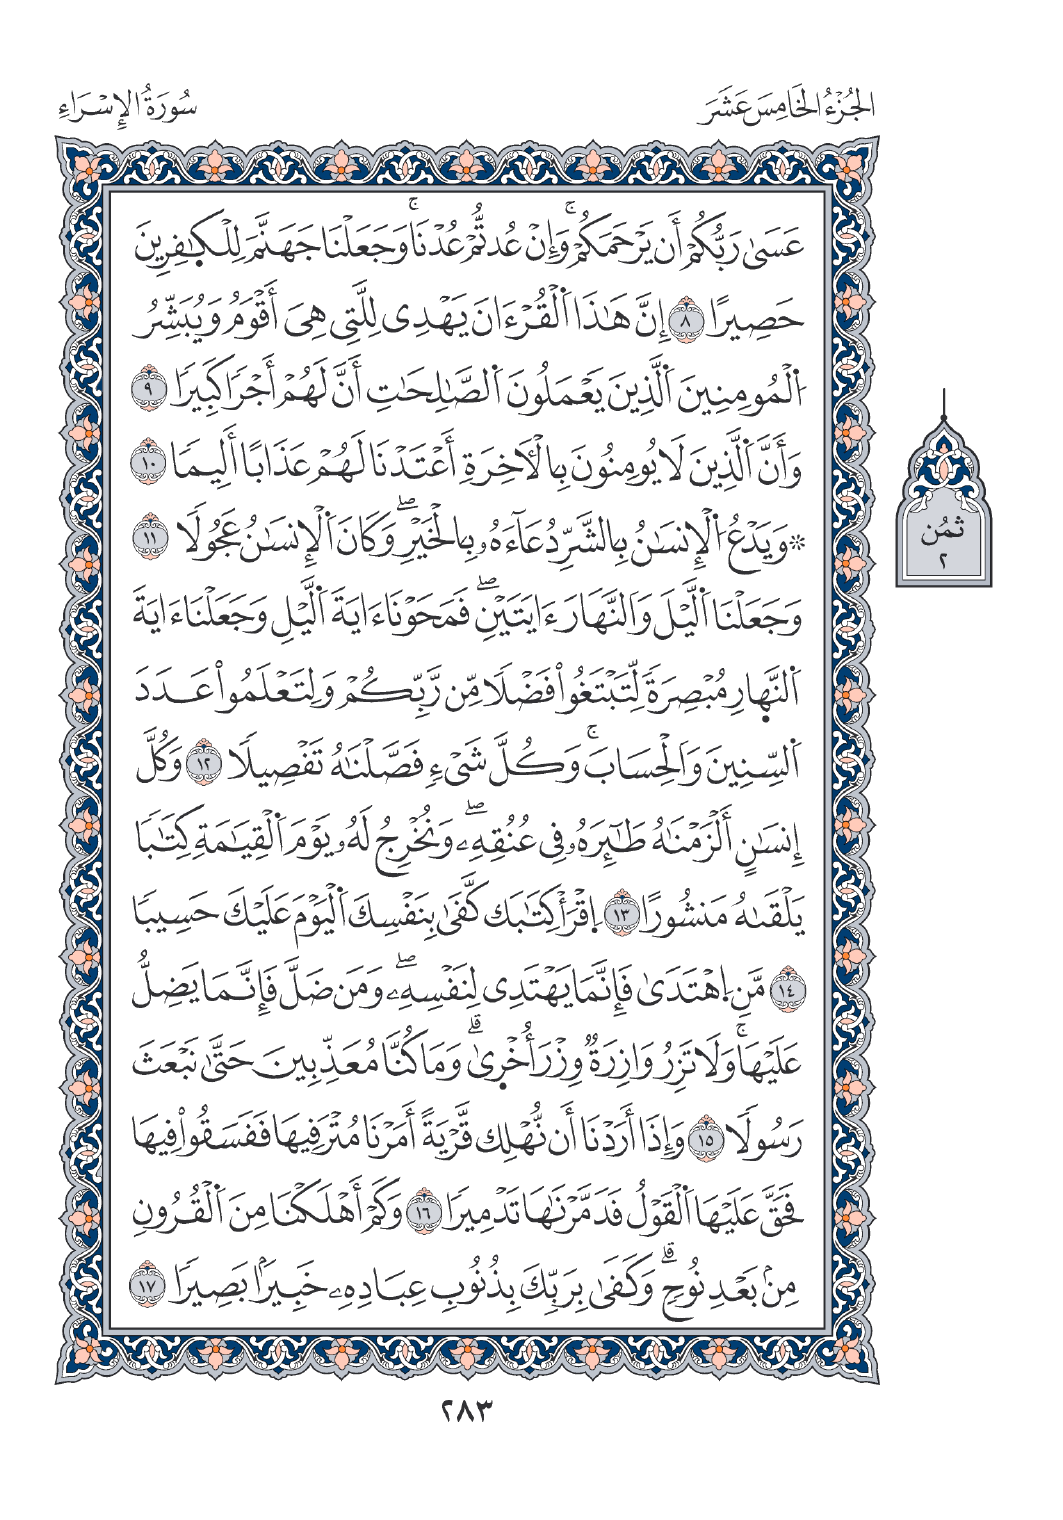 الجُزْءُ الخَامِسَ عَشَرَ
سُورَةُ الإِسْرَاءِ
عَسَىٰ رَبُّكُمْ أَن يَرْحَمَكُمْ ۚ وَإِنْ عُدتُّمْ عُدْنَا ۚ وَجَعَلْنَا جَهَنَّمَ لِلْكَٰفِرِينَ
حَصِيرًا ٨ إِنَّ هَٰذَا اَ۬لْقُرْءَانَ يَهْدِى لِلَّتِى هِىَ أَقْوَمُ وَيُبَشِّرُ
اُ۬لْمُومِنِينَ اَ۬لَّذِينَ يَعْمَلُونَ اَ۬لصَّٰلِحَٰتِ أَنَّ لَهُمْ أَجْرًا كَبِيرًا ٩
وَأَنَّ اَ۬لَّذِينَ لَا يُومِنُونَ بِالْأَخِرَةِ أَعْتَدْنَا لَهُمْ عَذَابًا أَلِيمًا ١٠
۞ وَيَدْعُ اُ۬لْإِنسَٰنُ بِالشَّرِّ دُعَآءَهُۥ بِالْخَيْرِ ۖ وَكَانَ اَ۬لْإِنسَٰنُ عَجُولًا ١١
وَجَعَلْنَا اَ۬لَّيْلَ وَالنَّهَارَ ءَايَتَيْنِ ۖ فَمَحَوْنَا ءَايَةَ اَ۬لَّيْلِ وَجَعَلْنَا ءَايَةَ
اَ۬لنَّهِارِ مُبْصِرَةً لِّتَبْتَغُوا۟ فَضْلًا مِّن رَّبِّكُمْ وَلِتَعْلَمُوا۟ عَدَدَ
اَ۬لسِّنِينَ وَالْحِسَابَ ۚ وَكُلَّ شَىْءٍ فَصَّلْنَٰهُ تَفْصِيلًا ١٢ وَكُلَّ
إِنسَٰنٍ أَلْزَمْنَٰهُ طَٰٓئِرَهُۥ فِى عُنُقِهِۦ ۖ وَنُخْرِجُ لَهُۥ يَوْمَ اَ۬لْقِيَٰمَةِ كِتَٰبًا
يَلْقَىٰهُ مَنشُورًا ١٣ اِ۪قْرَأْ كِتَٰبَك كَّفَىٰ بِنَفْسِكَ اَ۬لْيَوْمَ عَلَيْكَ حَسِيبًا
١٤ مَّنِ اِ۪هْتَدَىٰ فَإِنَّمَا يَهْتَدِى لِنَفْسِهِۦ ۖ وَمَن ضَلَّ فَإِنَّمَا يَضِلُّ
عَلَيْهَا ۚ وَلَا تَزِرُ وَازِرَةٌ وِزْرَ أُخْرِىٰ ۗ وَمَا كُنَّا مُعَذِّبِينَ حَتَّىٰ نَبْعَثَ
رَسُولًا ١٥ وَإِذَا أَرَدْنَا أَن نُّهْلِك قَّرْيَةً أَمَرْنَا مُتْرَفِيهَا فَفَسَقُوا۟ فِيهَا
فَحَقَّ عَلَيْهَا اَ۬لْقَوْلُ فَدَمَّرْنَٰهَا تَدْمِيرًا ١٦ وَكَمْ أَهْلَكْنَا مِنَ اَ۬لْقُرُونِ
مِنۢ بَعْدِ نُوحٍ ۗ وَكَفَىٰ بِرَبِّكَ بِذُنُوبِ عِبَادِهِۦ خَبِيرًۢا بَصِيرًا ١٧
ثمُن
٢
٢٨٣